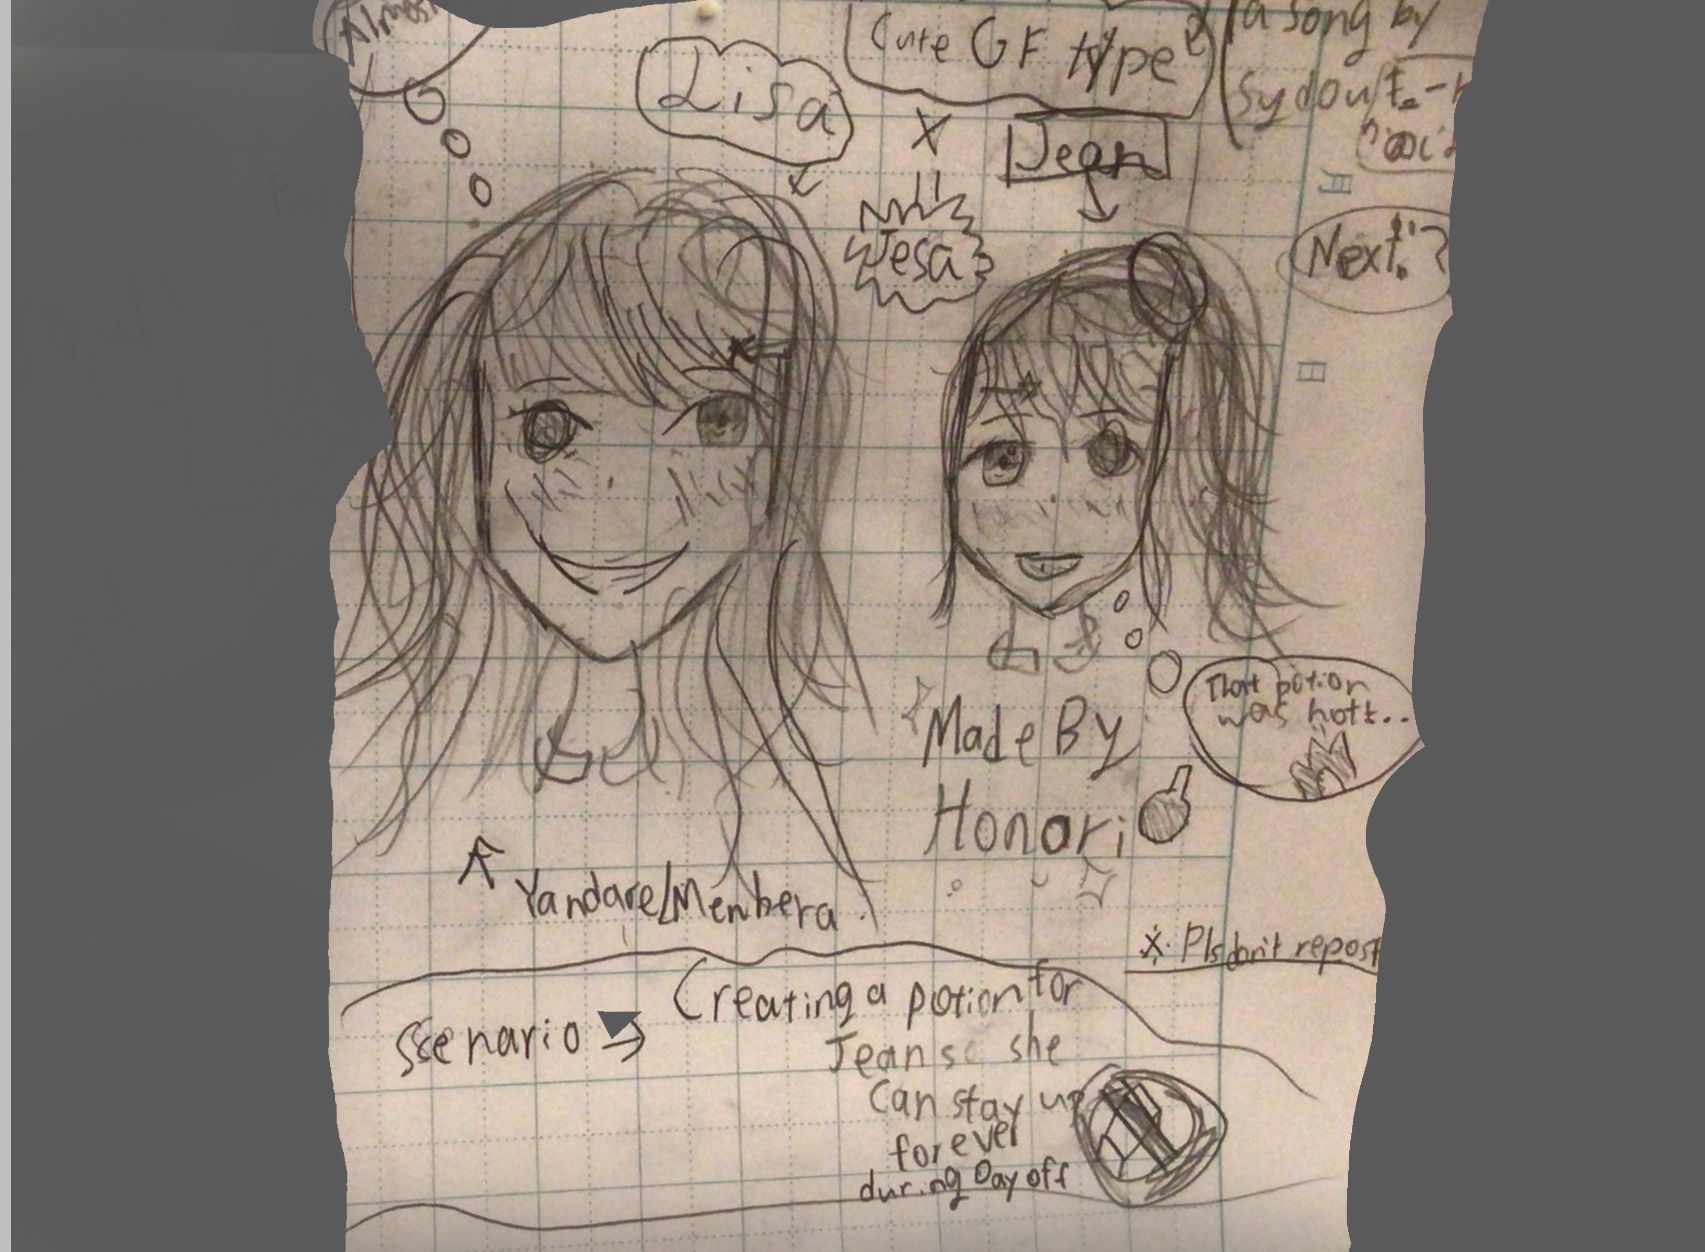 Almos
Lisa
Cute GF type
a song by
X
Jean
||
Jesa
日
Next!"?
日
That potion
was hott..
Made By
Honari
Yandare/Menhera
※ Pls don't repost
Sscenario → Creating a potion for
Jean so she
Can stay up
forever
during Day off